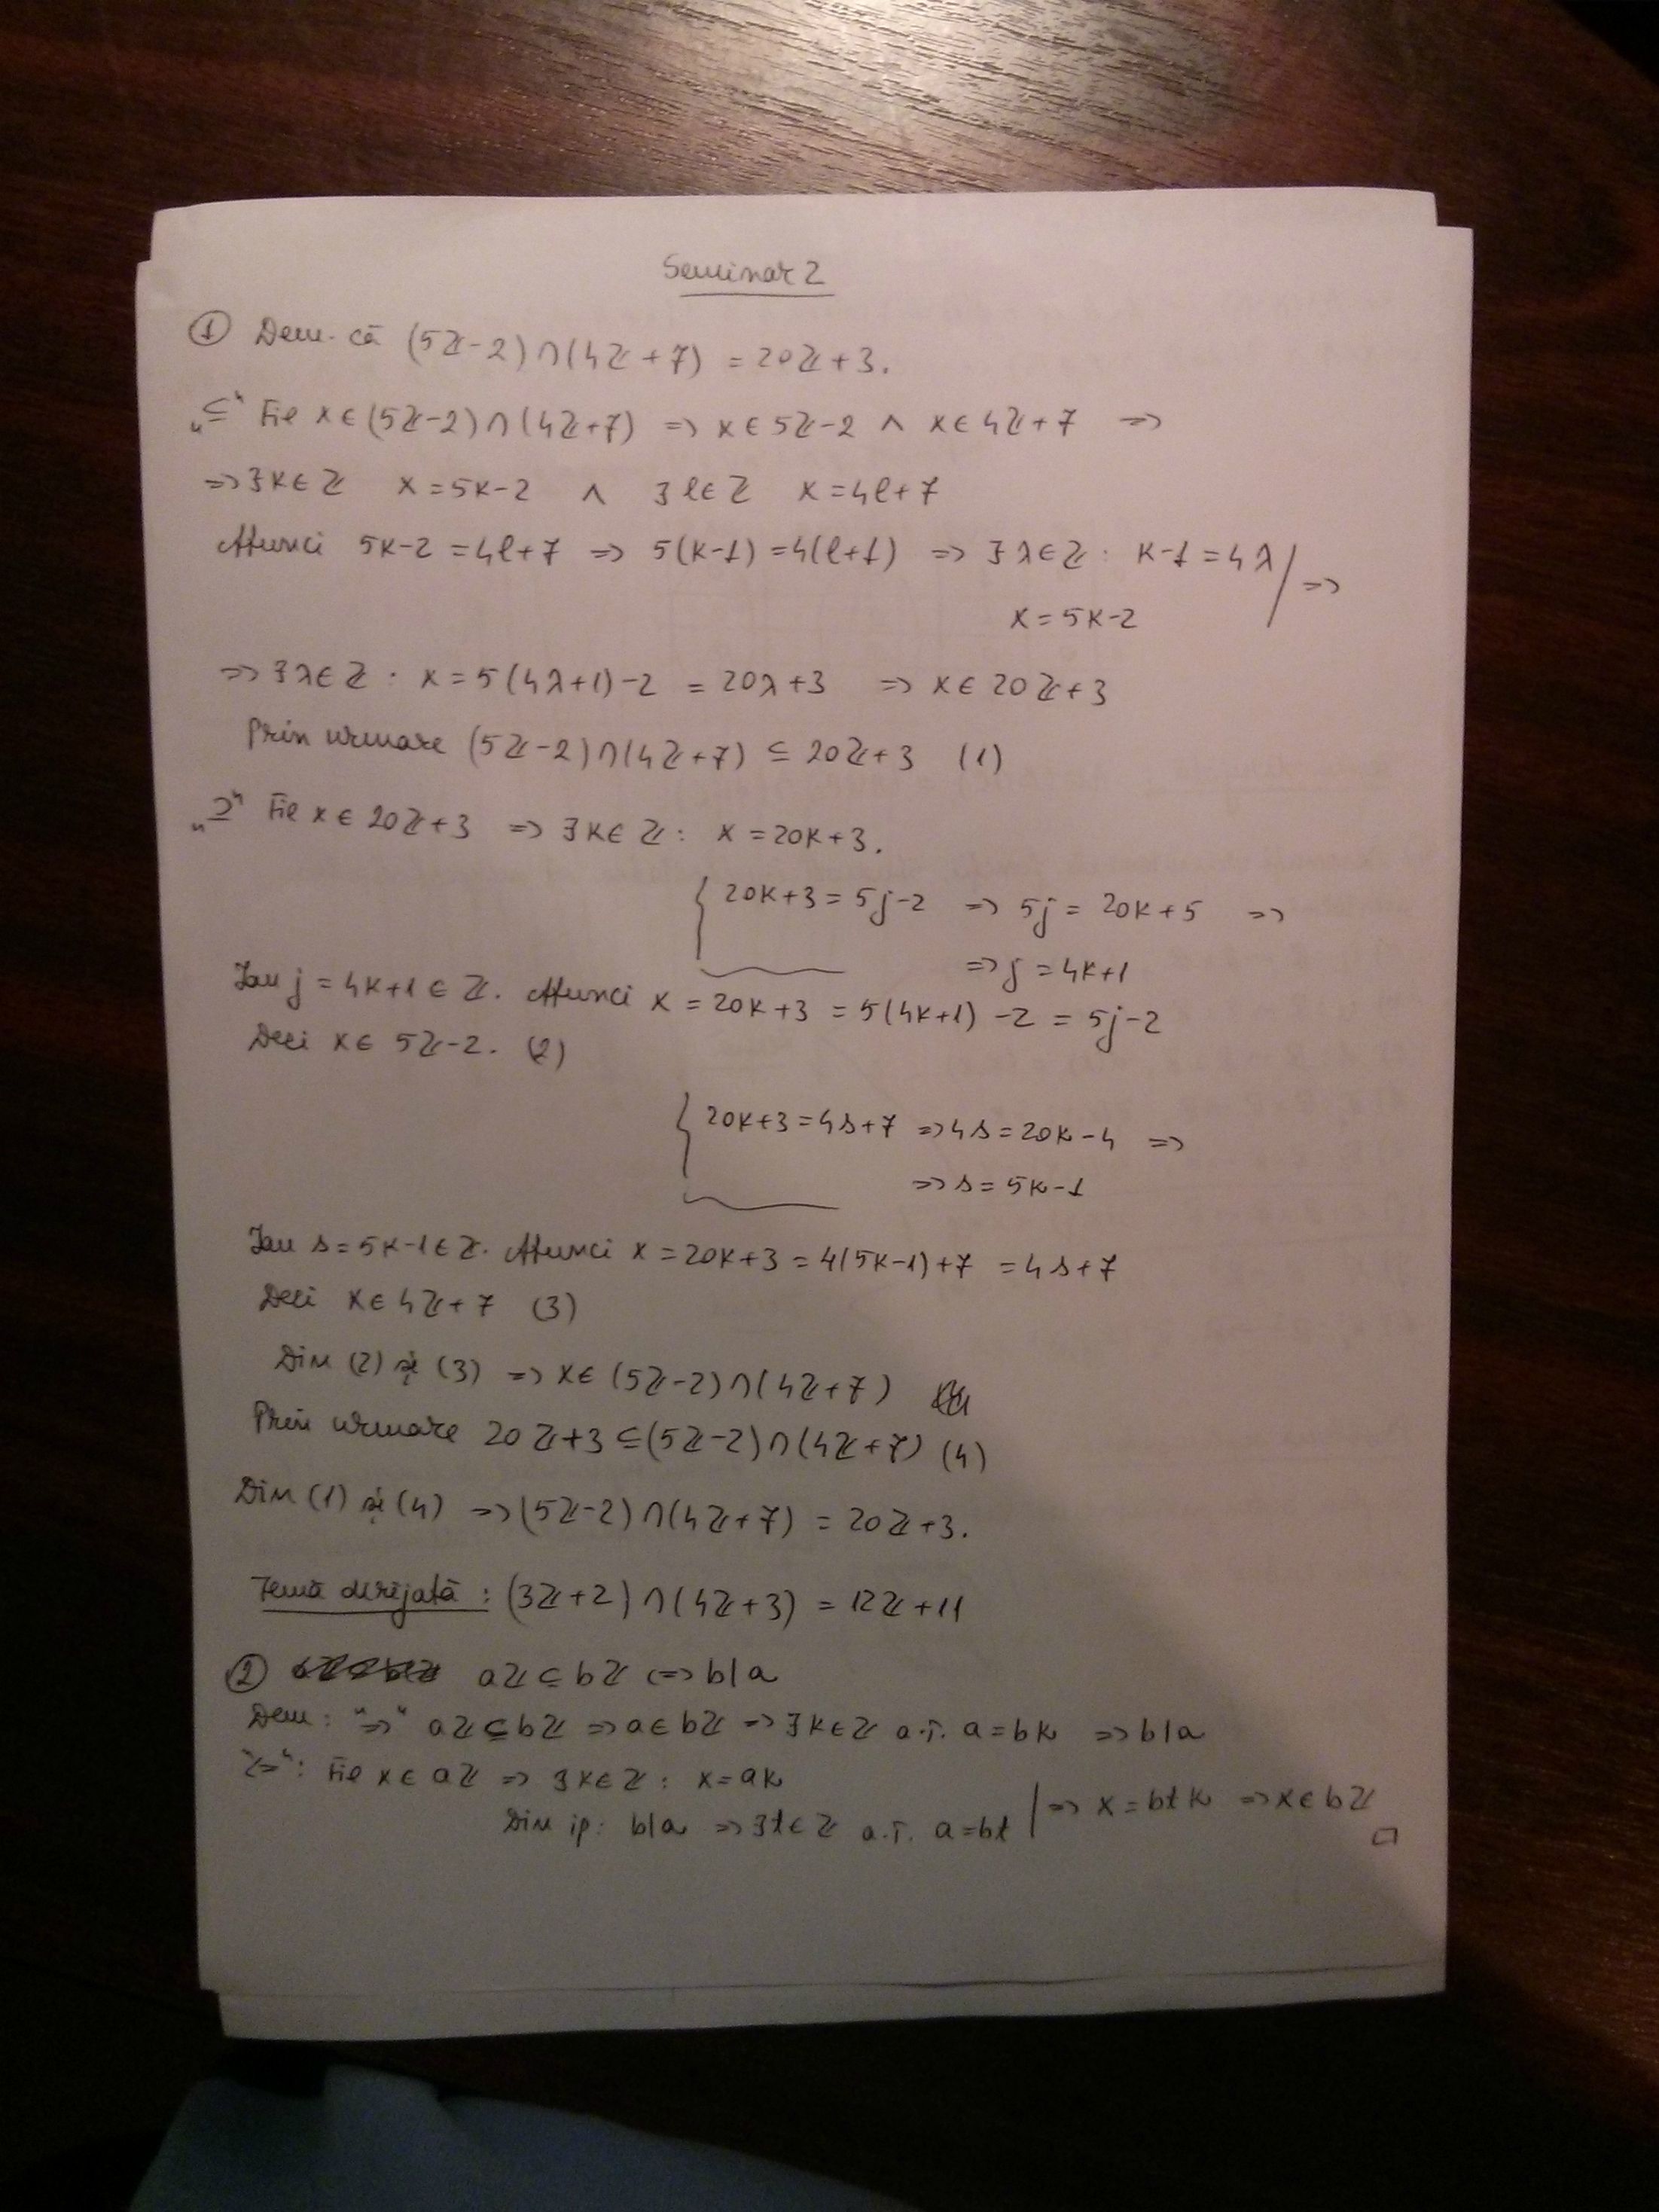 Seminar 2
① Dem. că (5ℤ-2)∩(4ℤ+7) = 20ℤ+3.
„⊆" Fie x∈(5ℤ-2)∩(4ℤ+7) => x∈5ℤ-2 ∧ x∈4ℤ+7 =>
=> ∃k∈ℤ x=5k-2 ∧ ∃l∈ℤ x=4l+7
Atunci 5k-2=4l+7 => 5(k-1)=4(l+1) => ∃λ∈ℤ: k-1=4λ | =>
x=5k-2
=> ∃λ∈ℤ: x=5(4λ+1)-2 = 20λ+3 => x∈20ℤ+3
Prin urmare (5ℤ-2)∩(4ℤ+7) ⊆ 20ℤ+3 (1)
„⊇" Fie x∈20ℤ+3 => ∃k∈ℤ: x=20k+3.
{ 20k+3=5j-2 => 5j=20k+5 =>
=> j=4k+1
Iau j=4k+1∈ℤ. Atunci x=20k+3=5(4k+1)-2=5j-2
Deci x∈5ℤ-2. (2)
{ 20k+3=4s+7 => 4s=20k-4 =>
=> s=5k-1
Iau s=5k-1∈ℤ. Atunci x=20k+3=4(5k-1)+7=4s+7
Deci x∈4ℤ+7 (3)
Din (2) și (3) => x∈(5ℤ-2)∩(4ℤ+7)
Prin urmare 20ℤ+3⊆(5ℤ-2)∩(4ℤ+7) (4)
Din (1) și (4) => (5ℤ-2)∩(4ℤ+7) = 20ℤ+3.
Temă dirijată: (3ℤ+2)∩(4ℤ+3) = 12ℤ+11
② aℤ⊆bℤ <=> b|a
Dem: "=>" aℤ⊆bℤ => a∈bℤ => ∃k∈ℤ a.î. a=bk => b|a
"<=": Fie x∈aℤ => ∃k∈ℤ: x=ak
Din ip: b|a => ∃t∈ℤ a.î. a=bt | => x=btk => x∈bℤ
□